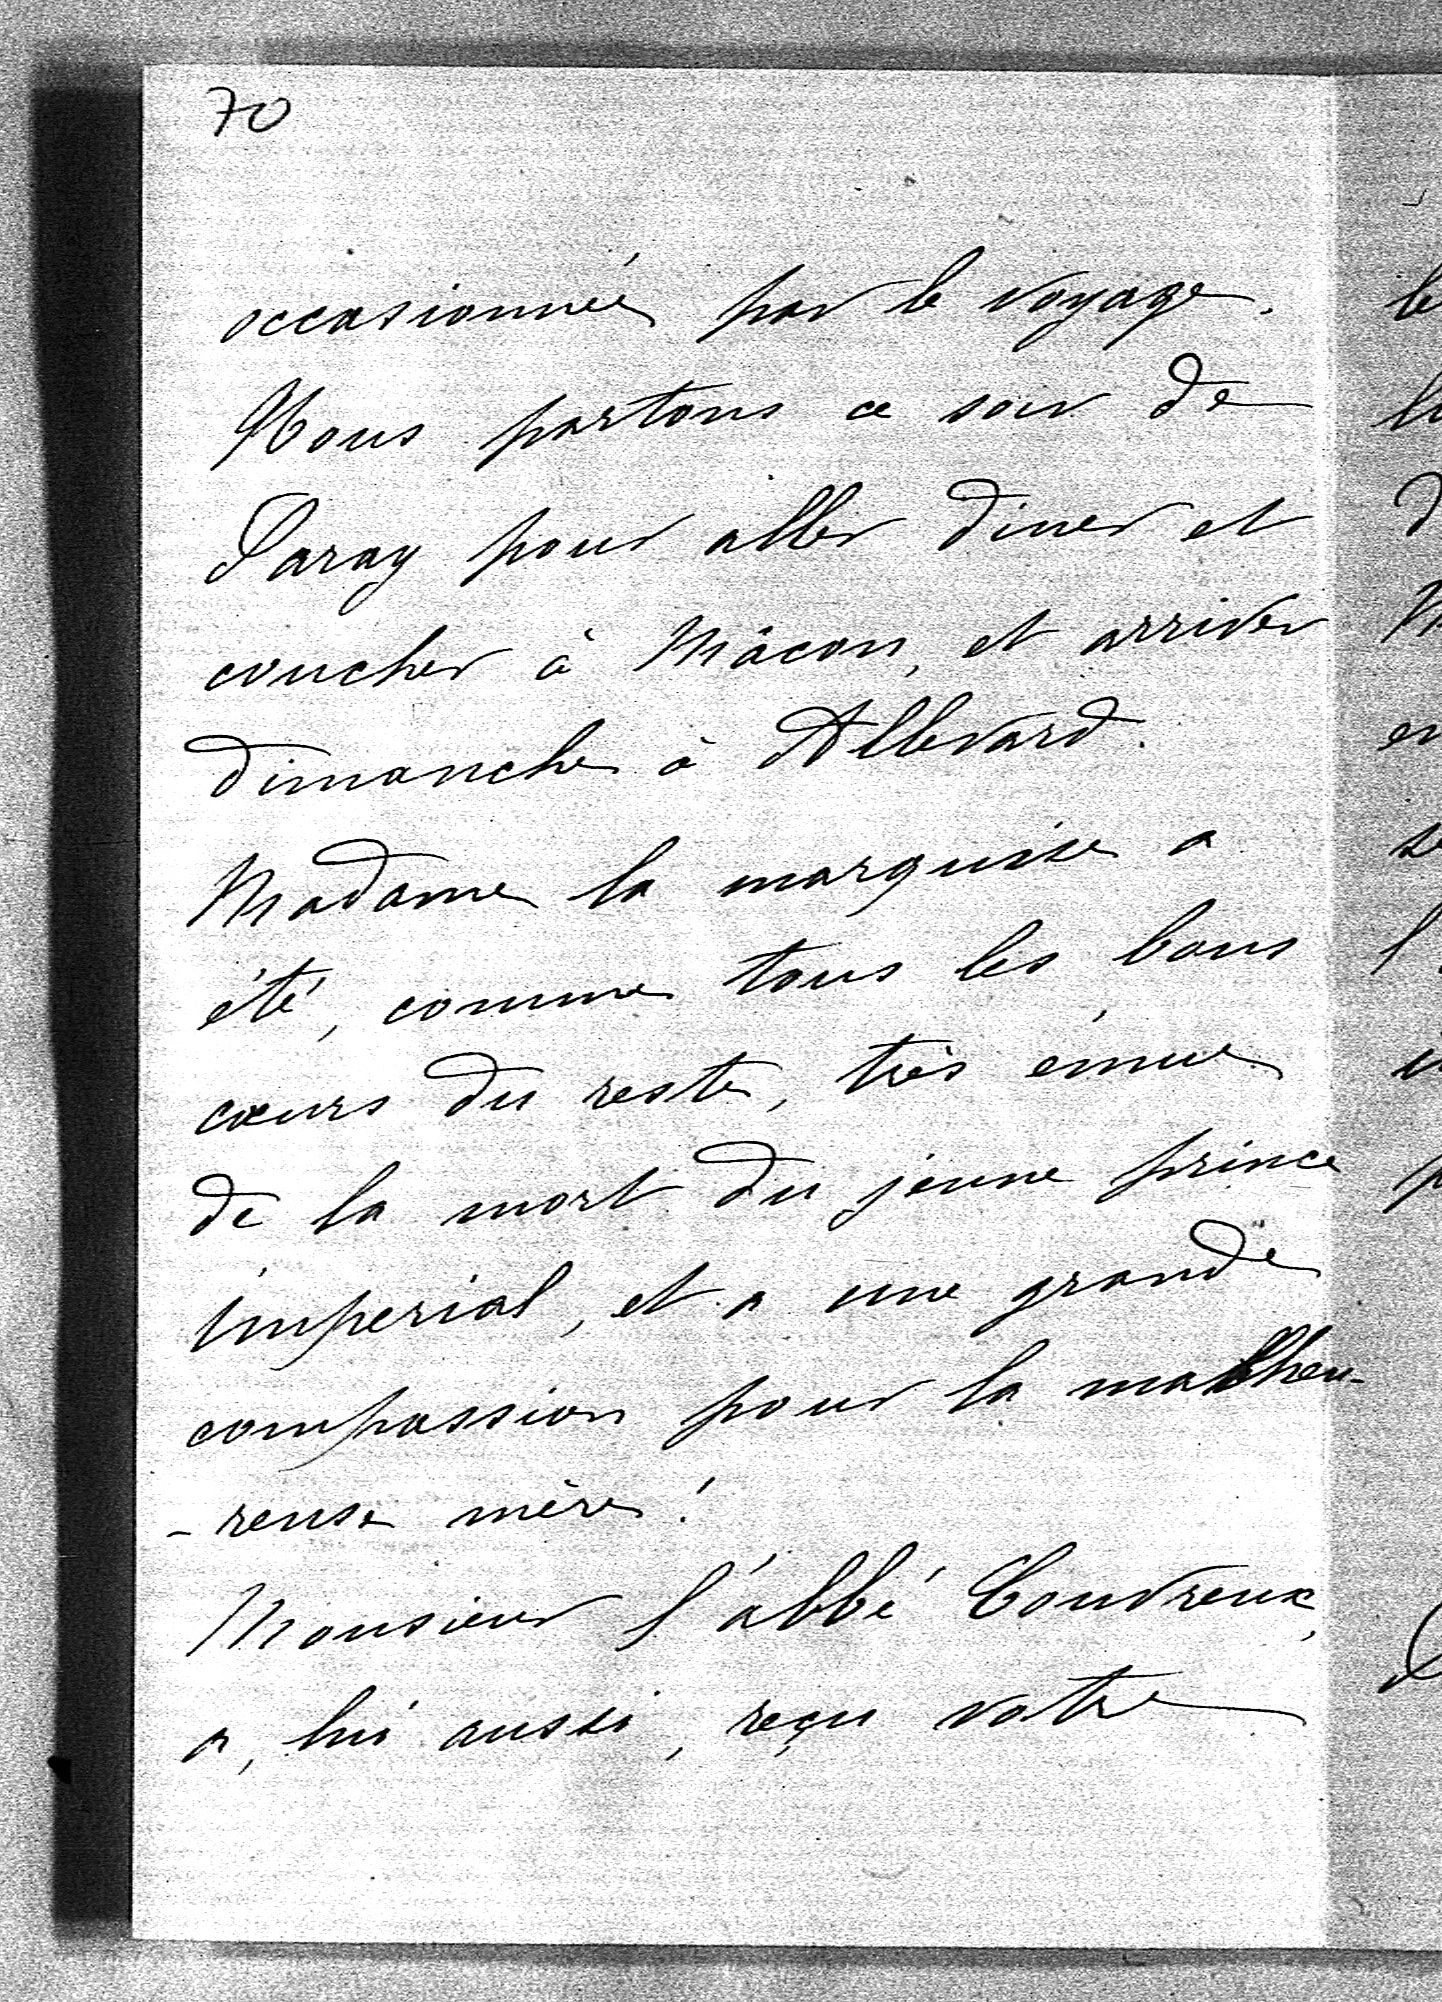 70
occasionnée par le voyage.
Nous partons ce soir de
Paray pour aller diner et
coucher à Mâcon, et arriver
dimanche à Allevard.
Madame la marquise a
été, comme tous les bons
cœurs du reste, très émue
de la mort du jeune prince
impérial, et a une grande
compassion pour la malheu-
-reuse mère!
Monsieur l'abbé Couvreux,
a, lui aussi, reçu votre